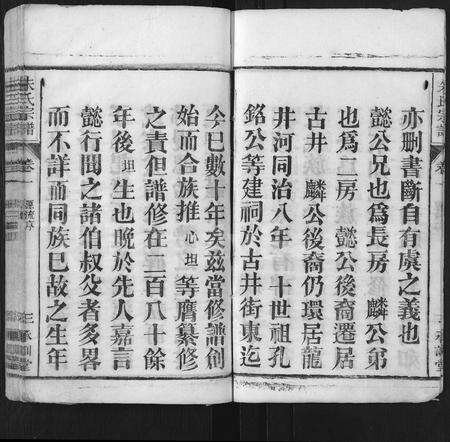 亦刪書斷自有虞之義也
懿公兄也爲長房　麟公弟
也爲二房　懿公後裔遷居
古井　麟公後裔仍環居龍
井河同治八年　十世祖孔
銘公等建祠於古井街東迄
今巳數十年矣茲當修譜創
始而合族推心坦等膺纂修
之責但譜修在二百八十餘
年後坦生也晚於先人嘉言
懿行聞之諸伯叔父者多畧
而不詳而同族巳故之生年
朱氏宗譜
卷
源流序
三